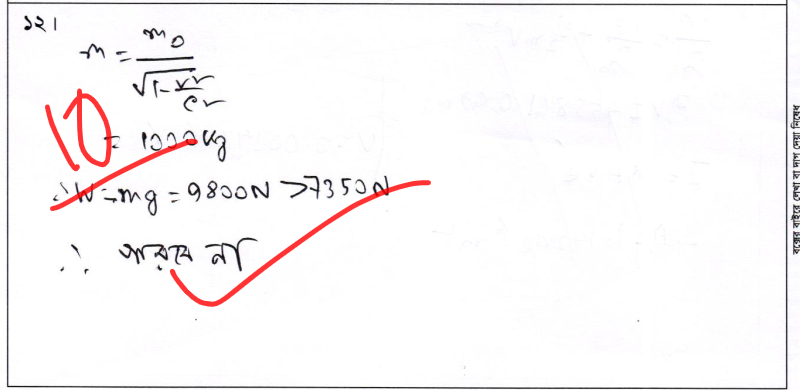 ১২।
m = m₀ / √(1 - v²/c²)
10
= 1000 kg
∴ W = mg = 9800N > 7350N
∴ পারবে না
বক্সের বাইরে লেখা বা দাগ দেয়া নিষেধ